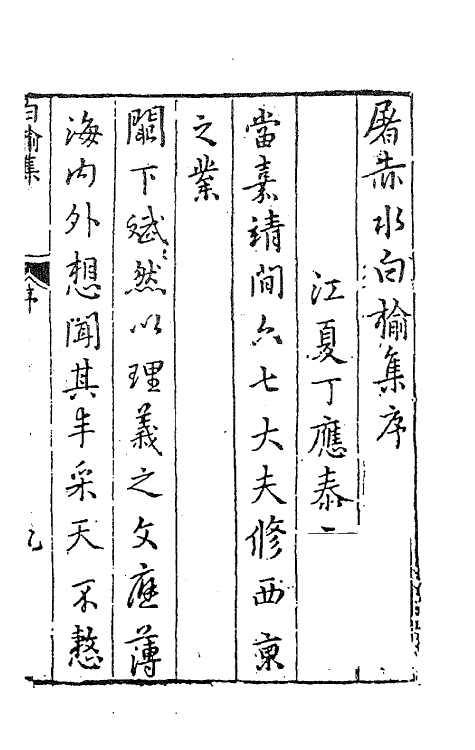 屠赤水白榆集序
江夏丁應泰
當嘉靖間六七大夫修西京
之業
闕下斌斌然以理義之文庭薄
海內外想聞其丰采天不憖
白榆集 序